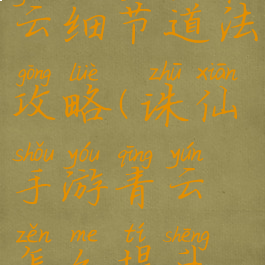 云细节道法
gōng lüè zhū xiān
攻略(诛仙
shǒu yóu qīng yún
手游青云
zěn me tí shēng
怎么提升